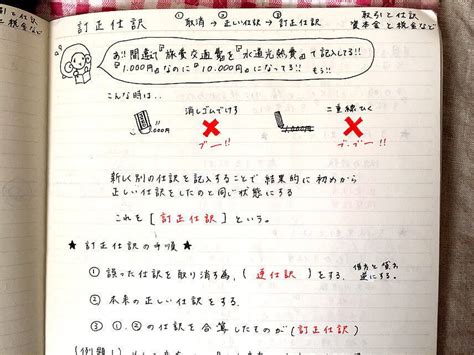 訂正仕訳
① ② ③
取消 → 正しい仕訳 → 訂正仕訳
取引と仕訳
資本金と税金など
あ!! 間違えて『旅費交通費』を『水道光熱費』って記入してる!!
『1,000円』なのに『10,000円』になってる!! もう!!
こんな時は..
消しゴムでけす
ブー!!
二重線ひく
1,000円
ブ、ブー!!
新しく別の仕訳を記入することで 結果的に 初めから
正しい仕訳をしたのと同じ状態にする
これを [訂正仕訳] という。
★ 訂正仕訳の手順 ★
① 誤った仕訳を取り消す為、(逆仕訳) をする.
借方と貸方
逆にする。
② 本来の正しい仕訳をする.
③ ①、②の仕訳を合算したのが (訂正仕訳)